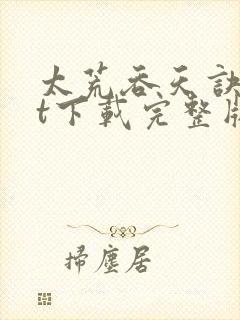 太荒吞天訣
t下載完整版
掃塵居